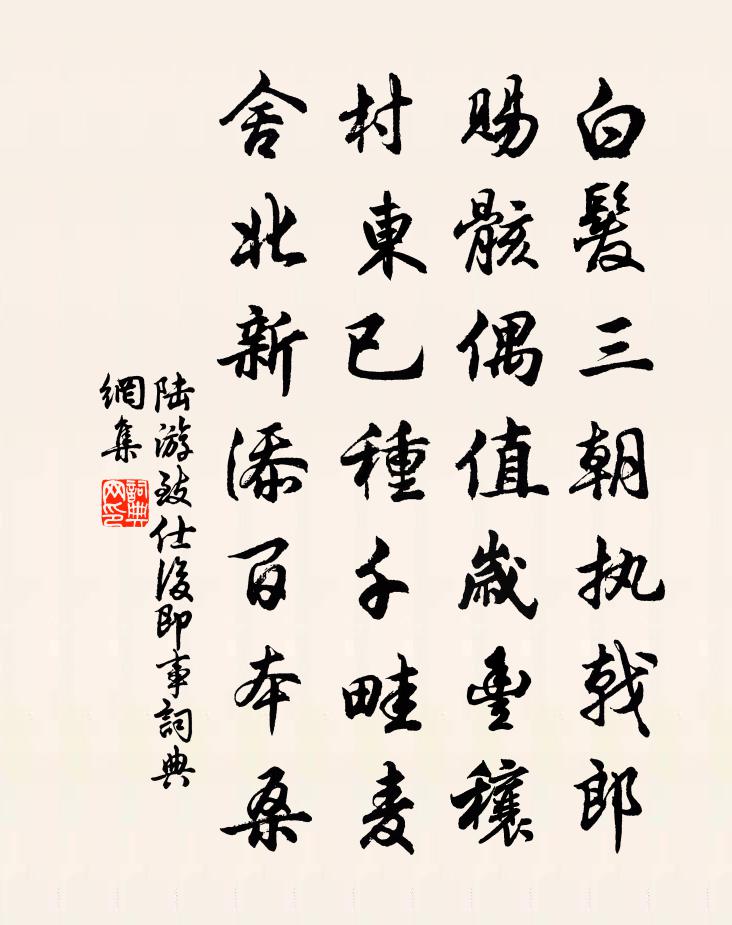 白髮三朝执戟郎
賜骸偶值歲豊穰
村東已種千畦麦
舍北新添百本桑
陆游致仕後即事詞典
網集
詞典
网印